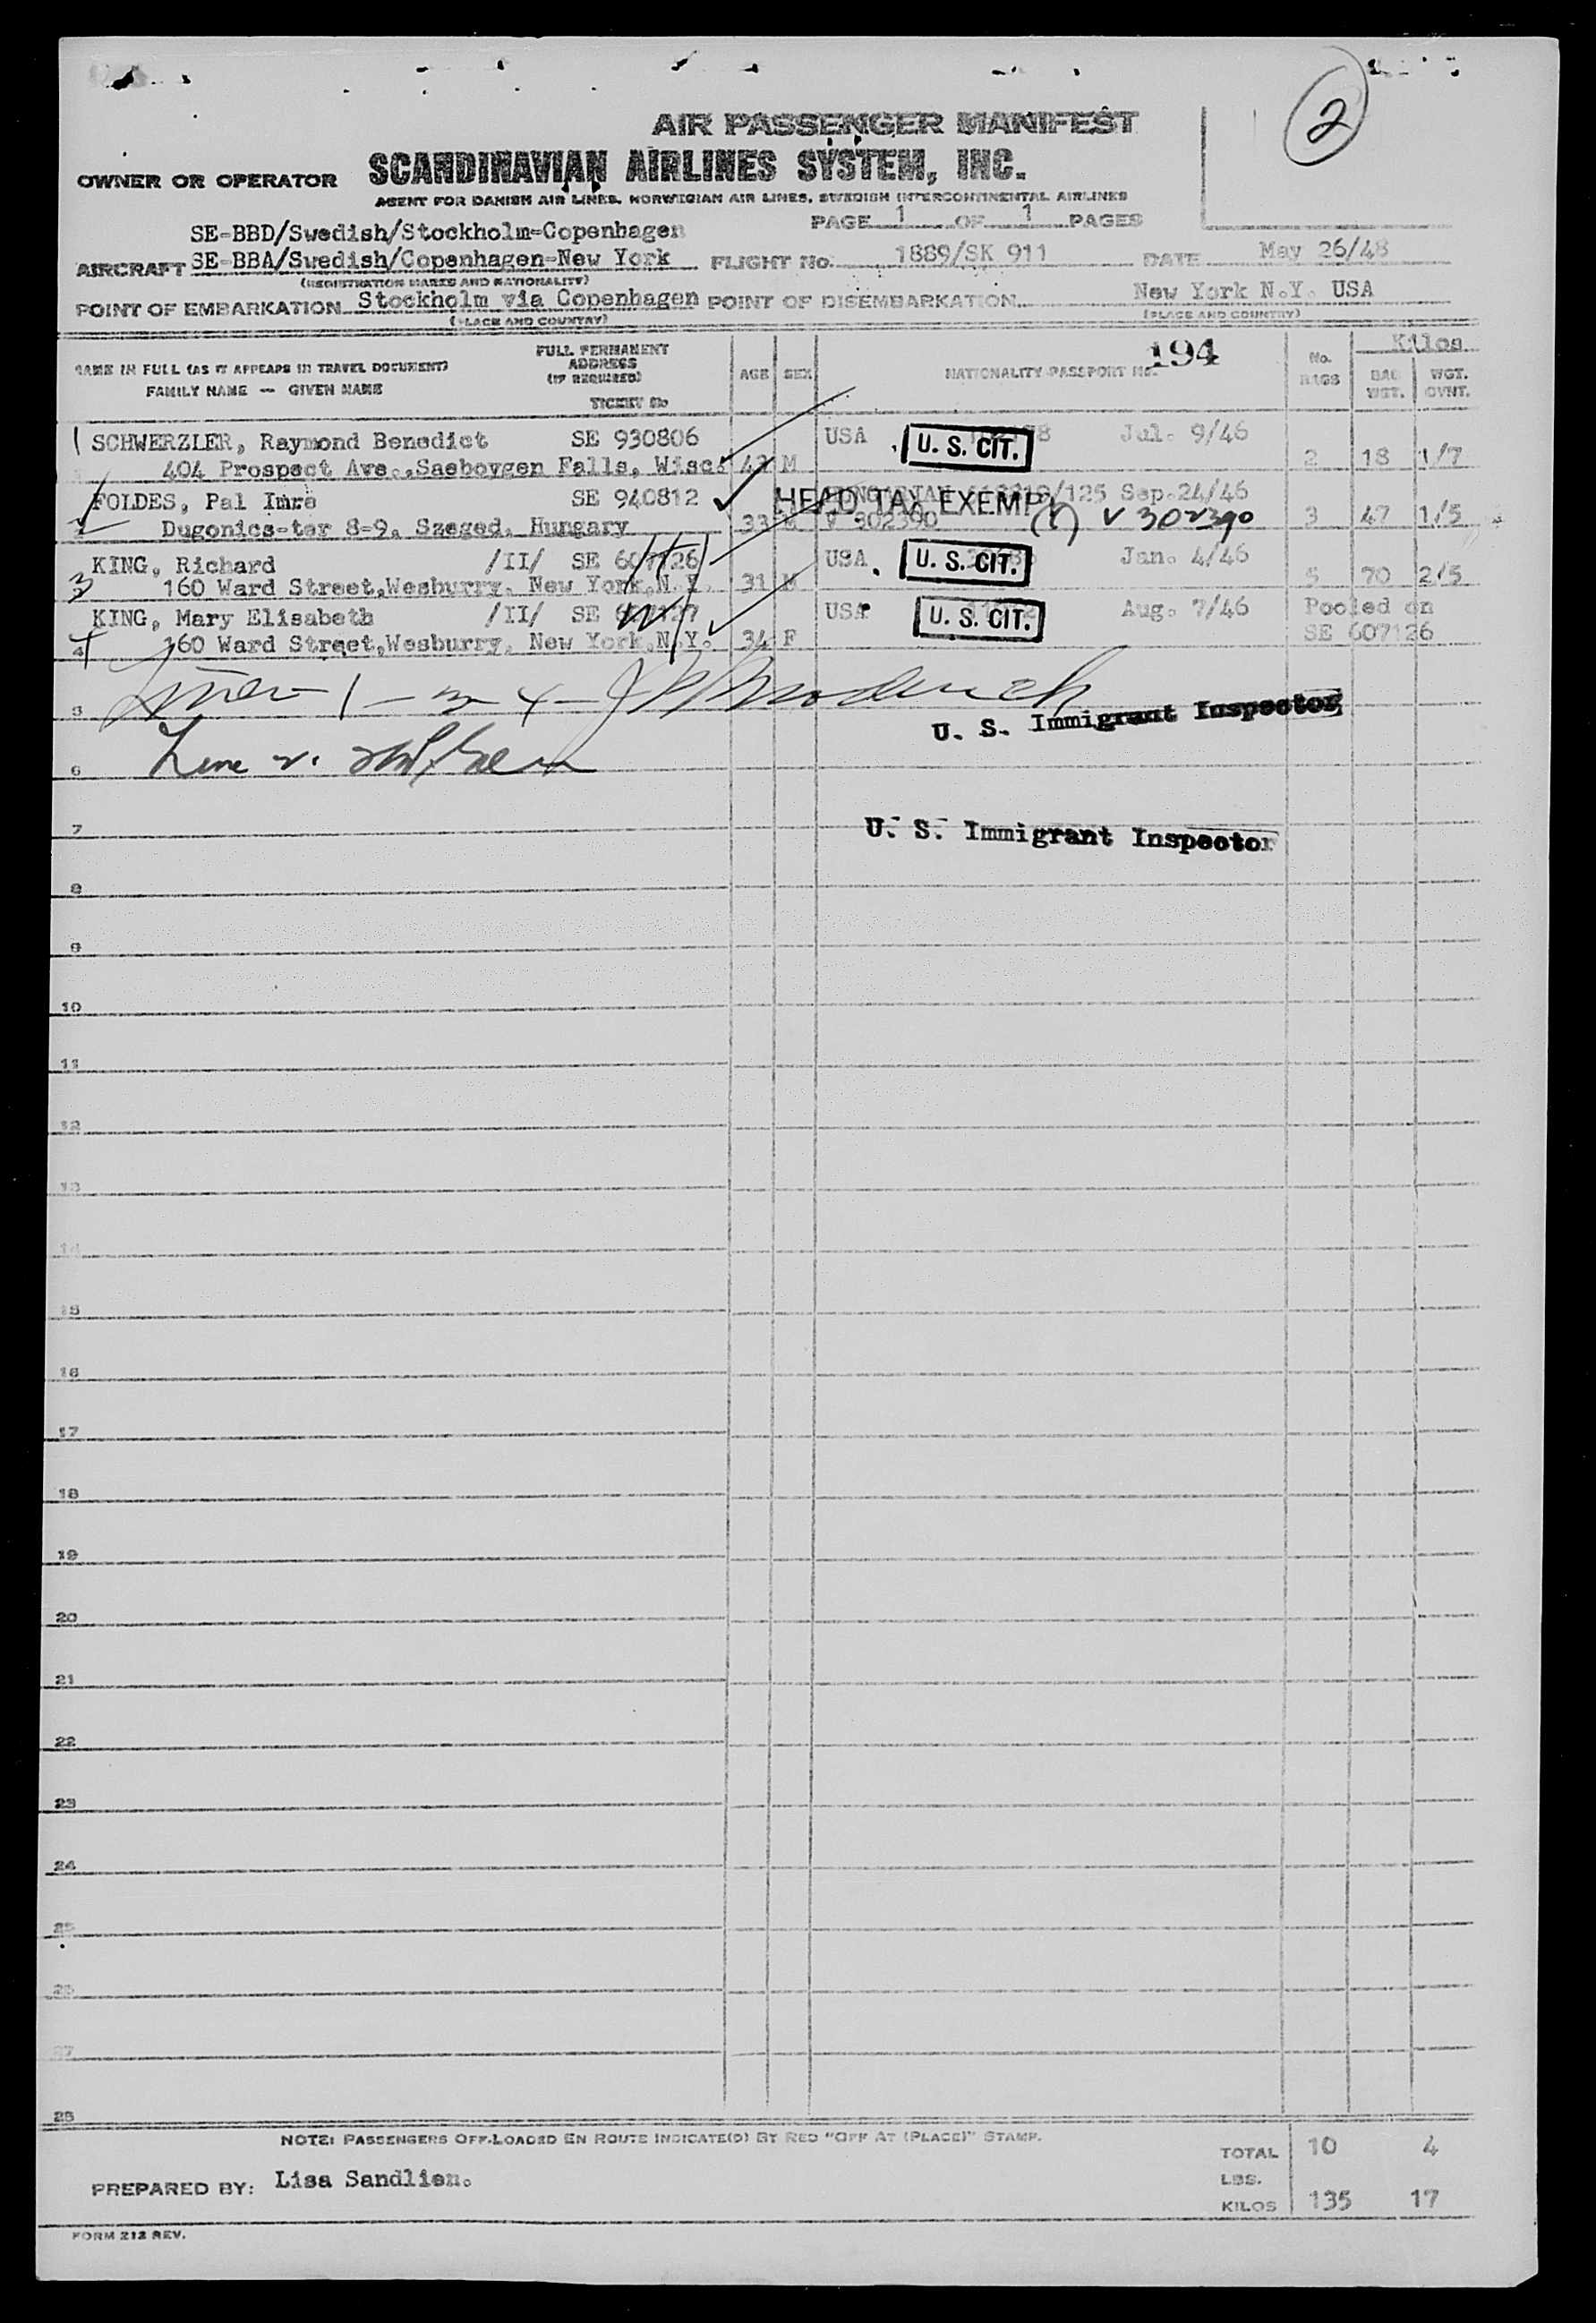 2
AIR PASSENGER MANIFEST
OWNER OR OPERATOR SCANDINAVIAN AIRLINES SYSTEM, INC.
AGENT FOR DANISH AIR LINES, NORWEGIAN AIR LINES, SWEDISH INTERCONTINENTAL AIRLINES
PAGE 1 OF 1 PAGES
SE-BBD/Swedish/Stockholm-Copenhagen
AIRCRAFT SE-BBA/Swedish/Copenhagen-New York FLIGHT No. 1889/SK 911 DATE May 26/48
(REGISTRATION MARKS AND NATIONALITY)
POINT OF EMBARKATION Stockholm via Copenhagen POINT OF DISEMBARKATION New York N.Y. USA
(PLACE AND COUNTRY) (PLACE AND COUNTRY)
NAME IN FULL (AS IT APPEARS IN TRAVEL DOCUMENT)
FAMILY NAME — GIVEN NAME
FULL PERMANENT
ADDRESS
(IF REQUIRED)
TICKET No
AGE SEX NATIONALITY-PASSPORT No. 194
No.
BAGS
Kilos
BAG
WGT.
WGT.
OVNT.
1 SCHWERZLER, Raymond Benedict SE 930806 USA U. S. CIT. Jul. 9/46
404 Prospect Ave.,Saeboygen Falls, Wisc. M 2 18 1/7
FOLDES, Pal Imre SE 940812 HEAD TAX EXEMPT /125 Sep.24/46
Dugonics-ter 8-9, Szeged, Hungary 33 M V 302390 V 302390 3 47 1/5
KING, Richard /II/ SE 607126 USA U. S. CIT. Jan. 4/46
3 160 Ward Street,Wesburry, New York,N.Y. 31 M 5 70 2/5
KING, Mary Elisabeth /II/ SE USA U. S. CIT. Aug. 7/46 Pooled on
4 160 Ward Street,Wesburry, New York,N.Y. 34 F SE 607126
1 - 3 - 4 -
5
U. S. Immigrant Inspector
Line 2.
6
7
U. S. Immigrant Inspector
8
9
10
11
12
13
14
15
16
17
18
19
20
21
22
23
24
25
26
27
28
NOTE: PASSENGERS OFF-LOADED EN ROUTE INDICATE(D) BY RED "OFF AT (PLACE)" STAMP.
TOTAL 10 4
LBS.
PREPARED BY: Lisa Sandlien.
KILOS 135 17
FORM 212 REV.